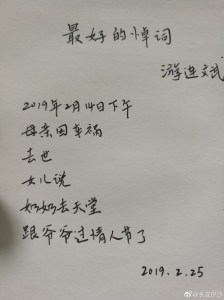 最好的悼词
游连文斌
2019年2月14日下午
母亲因车祸
去世
女儿说
奶奶去天堂
跟爷爷过情人节了
2019.2.25